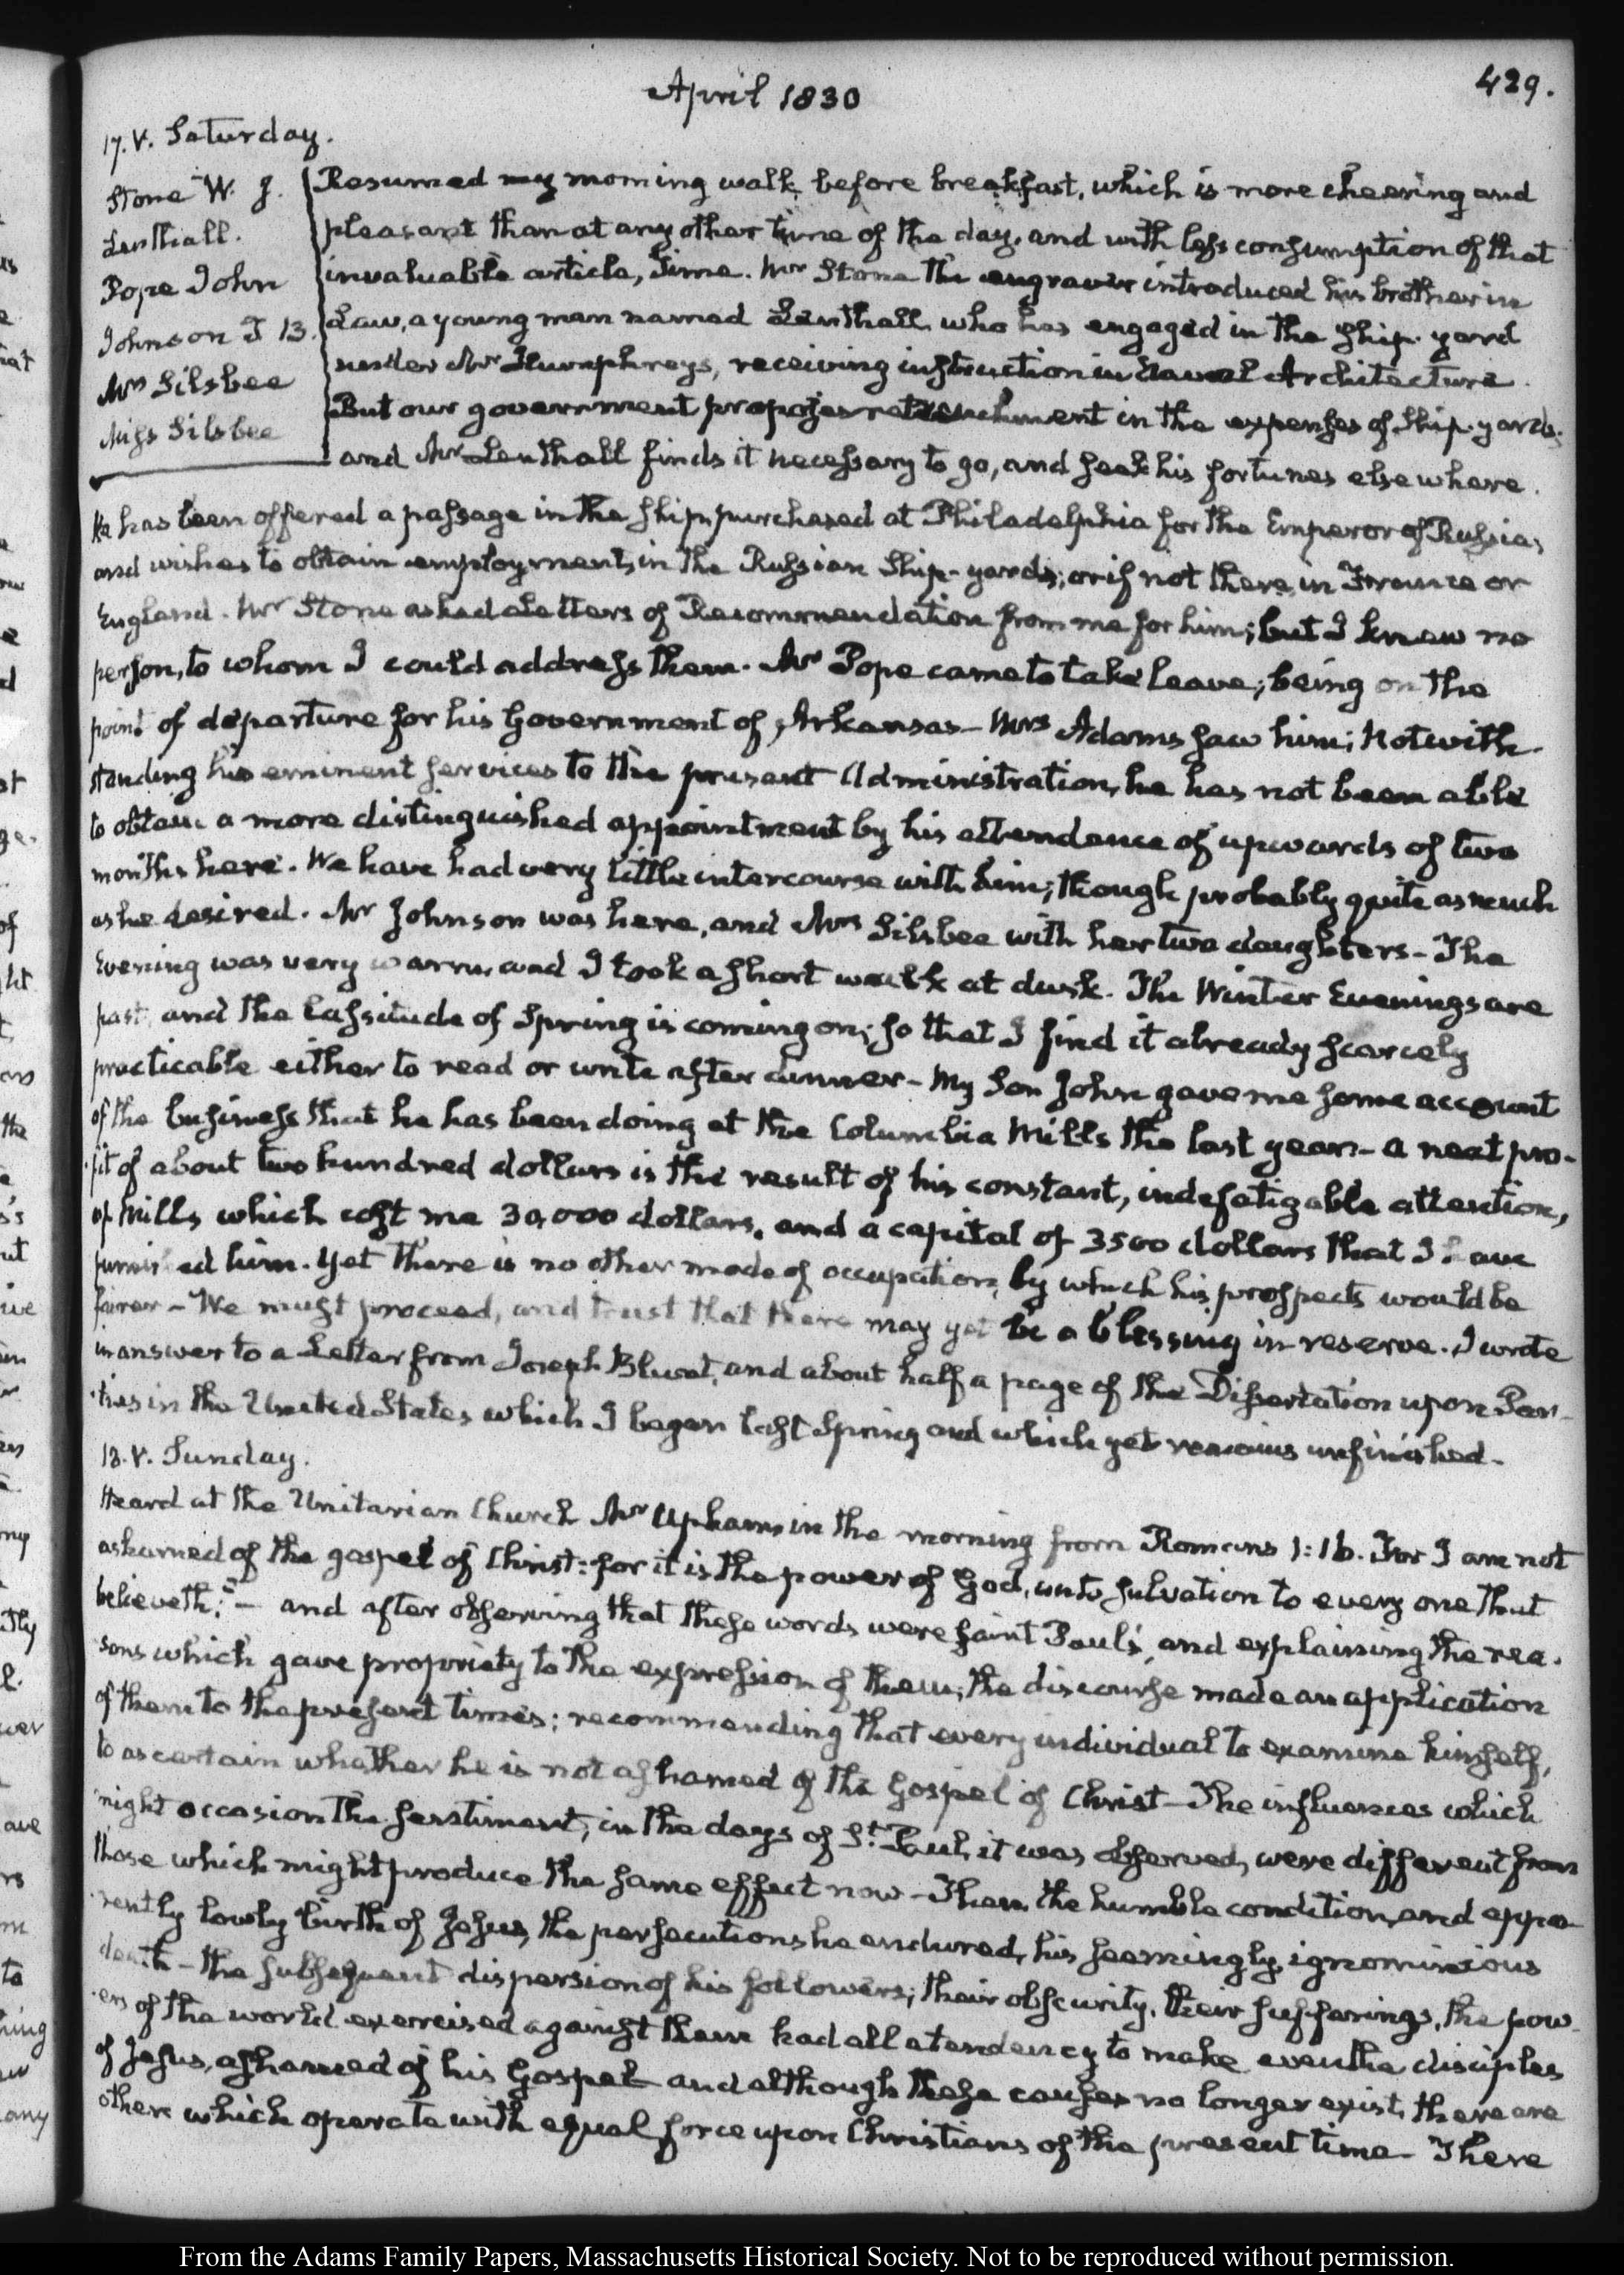 April 1830
429.
17. V. Saturday.
Stone W. J.
Lenthall.
Pope John
Johnson T B.
Mrs Silsbee
Miss Silsbee
Resumed my morning walk before breakfast, which is more cheering and
pleasant than at any other time of the day, and with less consumption of that
invaluable article, Time. Mr Stone the engraver introduced his brother in
Law, a young man named Lenthall who has engaged in the Ship-yard
under Mr Humphreys, receiving instruction in Naval Architecture.
But our government proposes retrenchment in the expenses of Ship-yards.
and Mr Lenthall finds it necessary to go, and seek his fortunes elsewhere.
He has been offered a passage in the ship, purchased at Philadelphia for the Emperor of Russia,
and wishes to obtain employment, in the Russian Ship-yards; or if not there, in France or
England. Mr Stone asked Letters of Recommendation from me for him; but I knew no
person, to whom I could address them. Mr Pope came to take leave; being on the
point of departure for his Government of Arkansas— Mrs Adams saw him; Notwith-
standing his eminent services to the present Administration, he has not been able
to obtain a more distinguished appointment by his attendance of upwards of two
months here. We have had very little intercourse with him; though probably quite as much
as he desired. Mr Johnson was here, and Mrs Silsbee with her two daughters— The
Evening was very warm, and I took a short walk at dusk. The Winter Evenings are
past, and the lassitude of Spring is coming on; so that I find it already scarcely
practicable either to read or write after dinner— My Son John gave me some account
of the business that he has been doing at the Columbia Mills the last year— a neat pro-
fit of about two hundred dollars is the result of his constant, indefatigable attention,
of Mills which cost me 30,000 dollars, and a capital of 3500 dollars that I have
furnished him. Yet there is no other mode of occupation, by which his prospects would be
fairer— We must proceed, and trust that there may yet be a blessing in reserve. I wrote
in answer to a Letter from Joseph Blunt, and about half a page of the Dissertation upon Par-
ties in the United States which I began last Spring and which yet remains unfinished.
18. V. Sunday.
Heard at the Unitarian Church Mr Upham, in the morning from Romans 1:16. For I am not
ashamed of the gospel of Christ: for it is the power of God, unto salvation to every one that
believeth:"— and after observing that these words were saint Paul's, and explaining the rea-
sons which gave propriety to the expression of them, the discourse made an application
of them to the present times; recommending that every individual to examine himself,
to ascertain whether he is not ashamed of the Gospel of Christ— The influences which
might occasion the sentiment, in the days of St. Paul, it was observed, were different from
those which might produce the same effect now— Then, the humble condition, and appa-
rently lowly birth of Jesus, the persecutions he endured, his seemingly ignominious
death— the subsequent dispersion of his followers; their obscurity, their sufferings, the pow-
ers of the world exercised against them had all a tendency to make even the disciples
of Jesus, ashamed of his Gospel— and although these causes no longer exist, there are
others which operate with equal force upon Christians of the present time— There
From the Adams Family Papers, Massachusetts Historical Society. Not to be reproduced without permission.